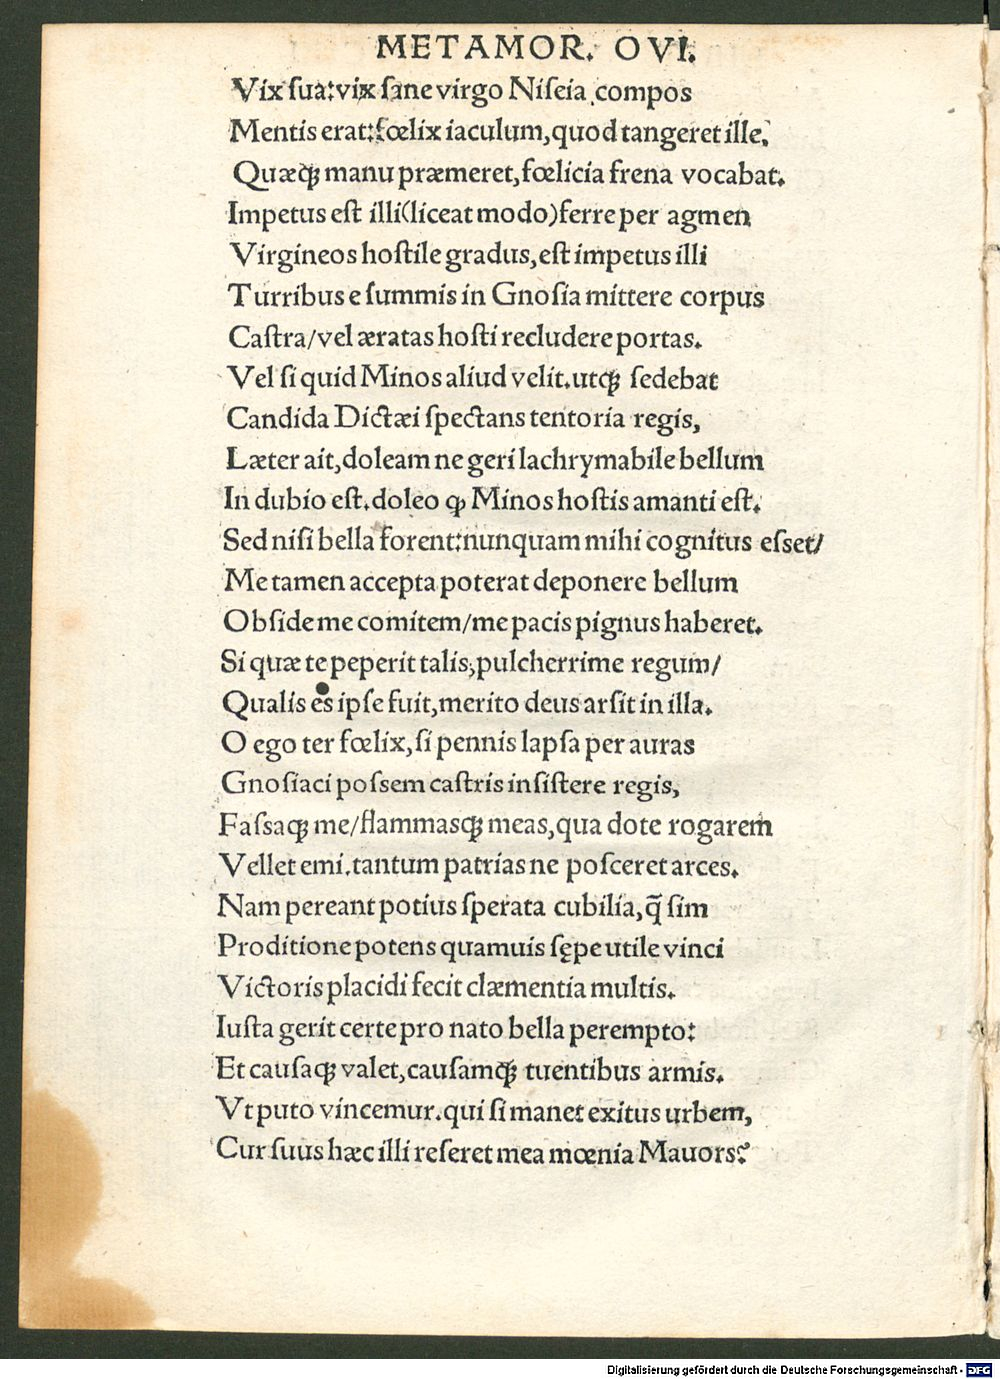 METAMOR. OVI.
Vix ſua: vix ſane virgo Niſeia compos
Mentis erat: fœlix iaculum, quod tangeret ille,
Quæqꝫ manu præmeret, fœlicia frena vocabat.
Impetus eſt illi (liceat modo) ferre per agmen
Virgineos hoſtile gradus, eſt impetus illi
Turribus e ſummis in Gnoſia mittere corpus
Caſtra/ vel æratas hoſti recludere portas.
Vel ſi quid Minos aliud velit. utqꝫ ſedebat
Candida Dictæi ſpectans tentoria regis,
Læter ait, doleam ne geri lachrymabile bellum
In dubio eſt. doleo ꝙ Minos hoſtis amanti eſt.
Sed niſi bella forent: nunquam mihi cognitus eſſet/
Me tamen accepta poterat deponere bellum
Obſide me comitem/ me pacis pignus haberet.
Si quæ te peperit talis, pulcherrime regum/
Qualis es ipſe fuit, merito deus arſit in illa.
O ego ter fœlix, ſi pennis lapſa per auras
Gnoſiaci poſſem caſtris inſiſtere regis,
Faſſaqꝫ me/ flammasqꝫ meas, qua dote rogarem
Vellet emi. tantum patrias ne poſceret arces.
Nam pereant potius ſperata cubilia, q̃ ſim
Proditione potens quamuis ſępe utile vinci
Victoris placidi fecit clæmentia multis.
Iuſta gerit certe pro nato bella perempto:
Et cauſaqꝫ valet, cauſamqꝫ tuentibus armis.
Vt puto vincemur. qui ſi manet exitus urbem,
Cur ſuus hæc illi reſeret mea mœnia Mauors?
Digitalisierung gefördert durch die Deutsche Forschungsgemeinschaft - DFG